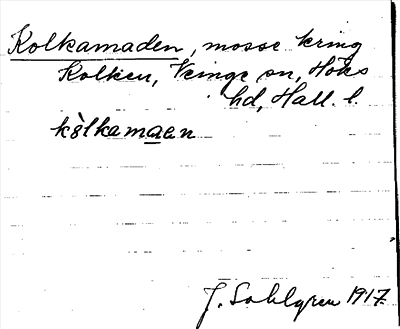 Kolkamaden, mosse kring
Kolken, Veinge sn, Höks
hd, Hall. l.
kòlkamaen
J. Sahlgren 1917.